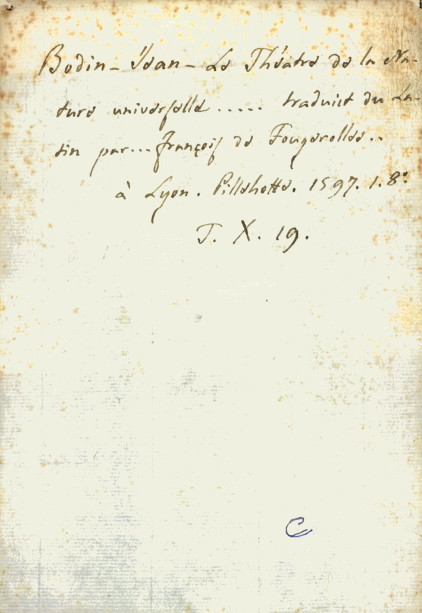 Bodin - Jean - Le Théatre de la Na-
ture universelle ..... traduict du La-
tin par... François de Fougerolles..
à Lyon. Pillehotte. 1597. 1. 8°
T. X. 19.
C